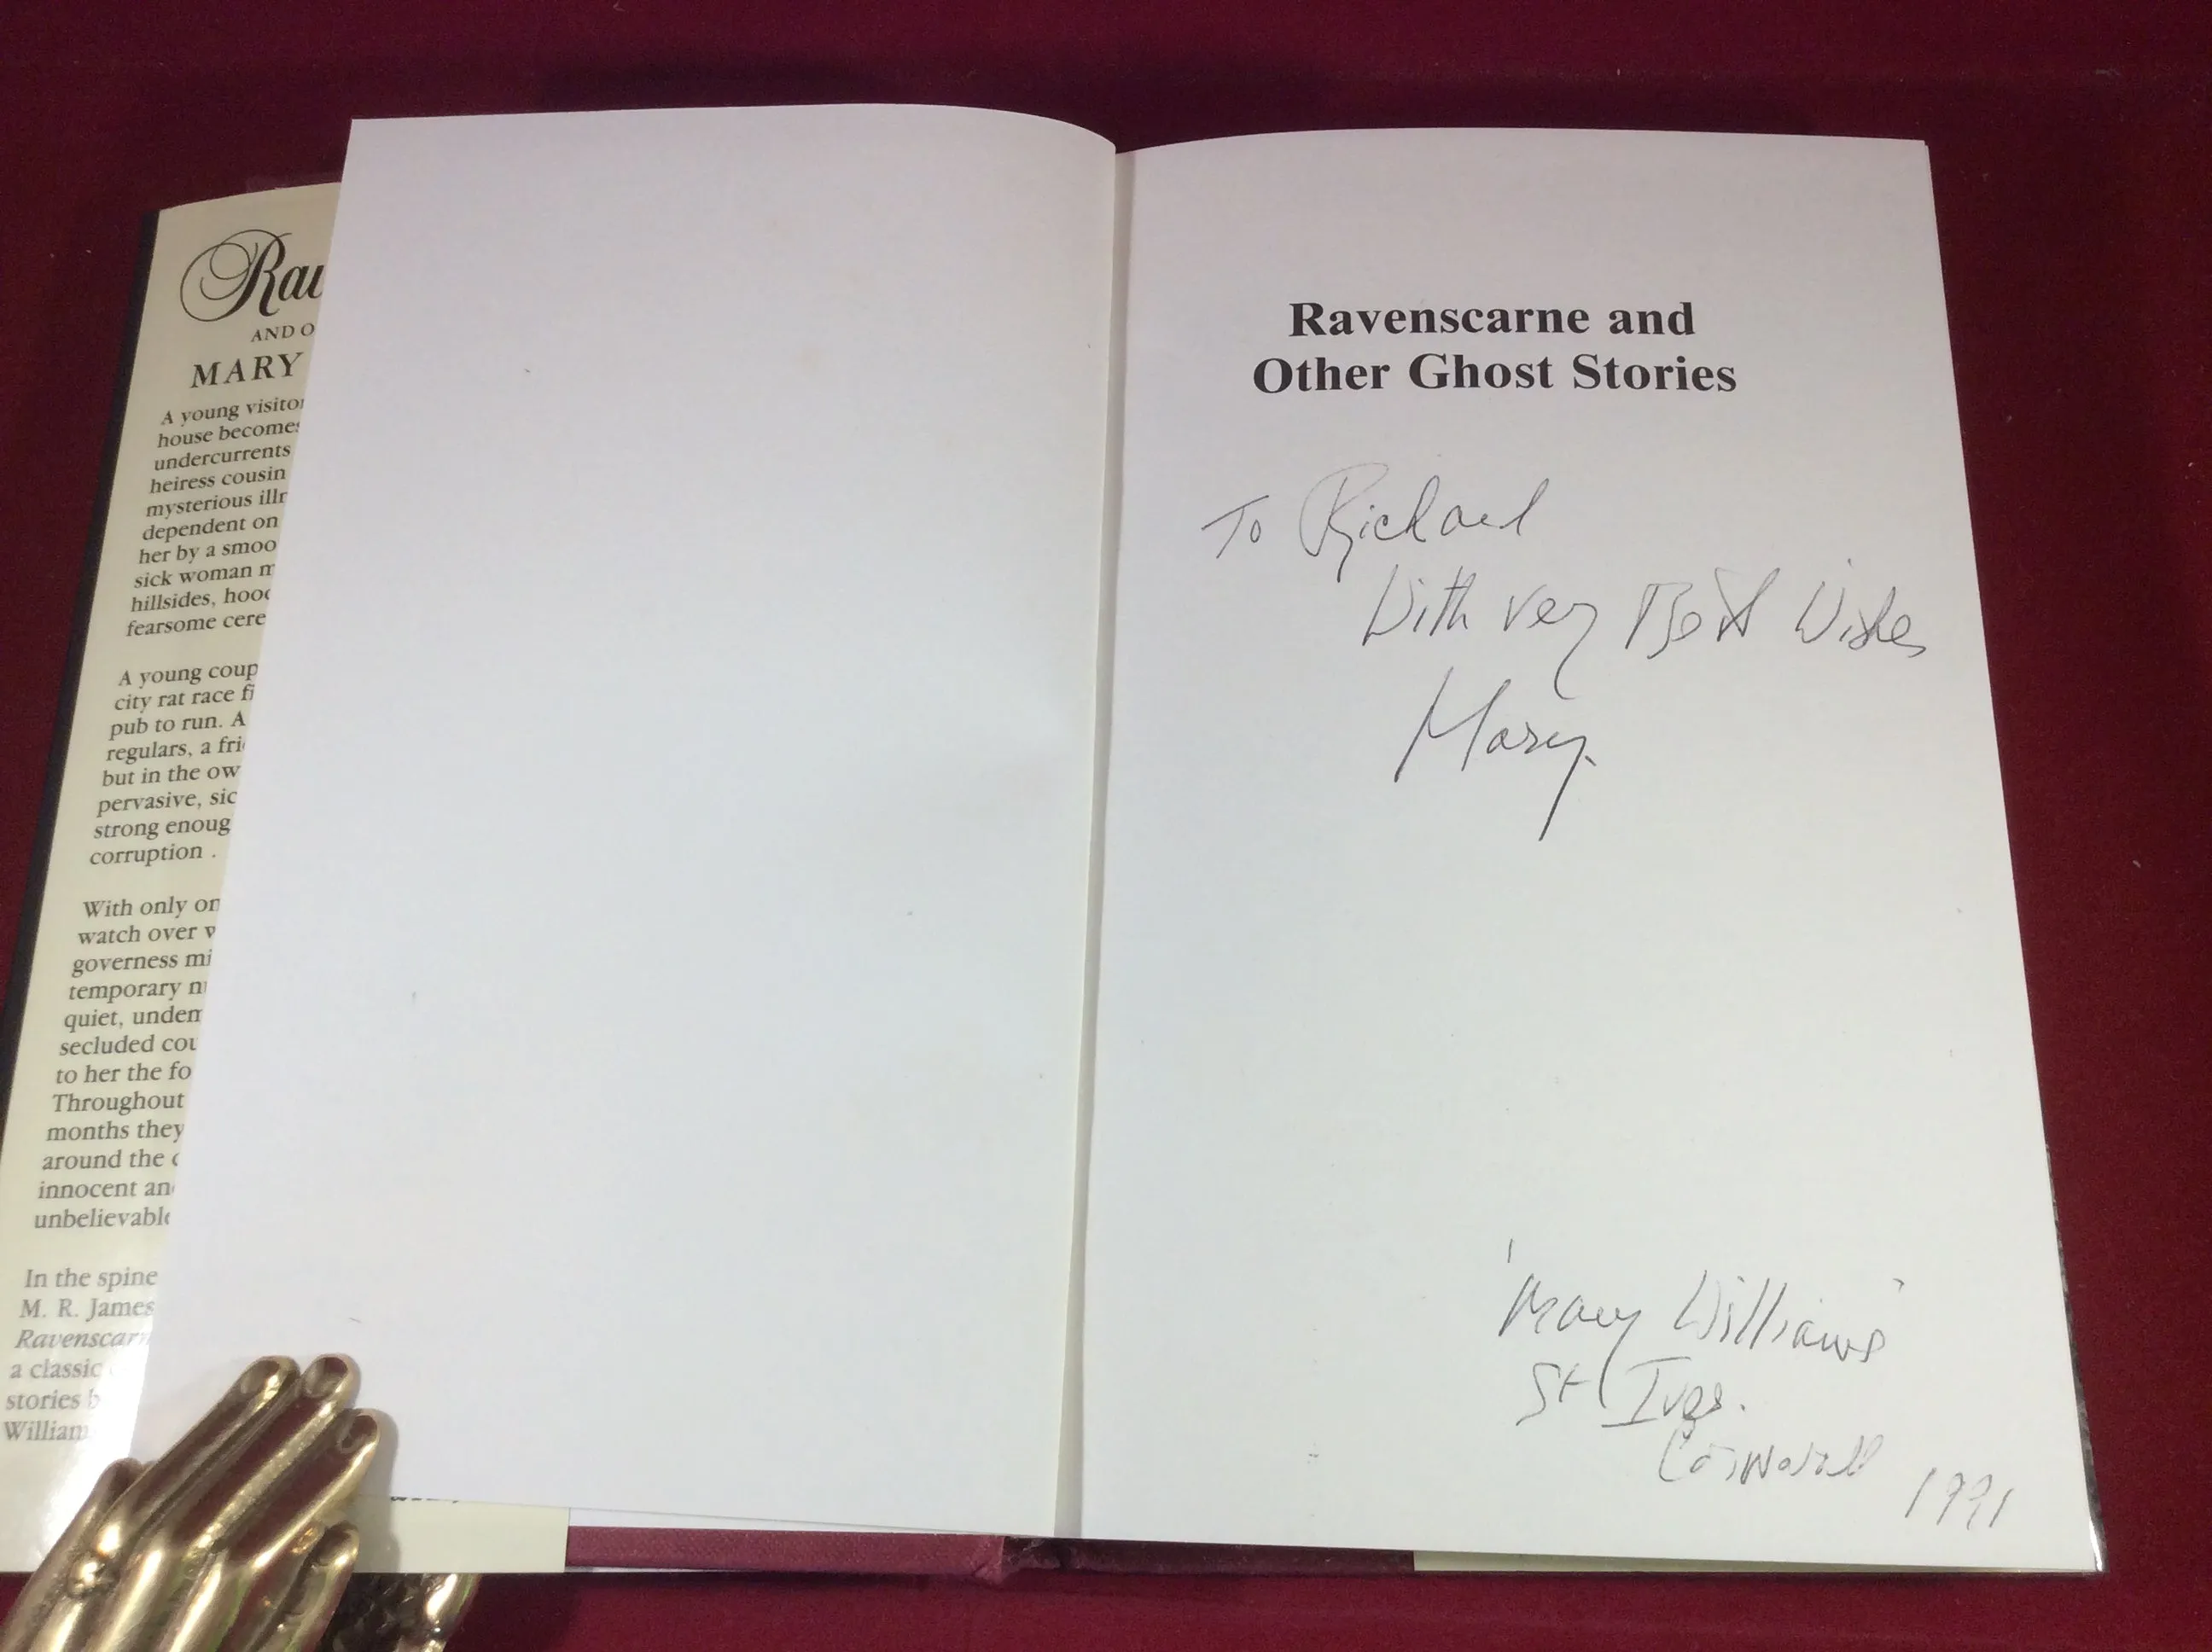 Rav
AND O
MARY
A young visitor
house becomes
undercurrents
heiress cousin
mysterious illr
dependent on
her by a smoo
sick woman m
hillsides, hood
fearsome cere
A young coup
city rat race fi
pub to run. A
regulars, a fri
but in the ow
pervasive, sic
strong enoug
corruption .
With only on
watch over w
governess mi
temporary n
quiet, undem
secluded cou
to her the fo
Throughout
months they
around the c
innocent an
unbelievable
In the spine
M. R. James
Ravenscarn
a classic
stories b
William
Ravenscarne and
Other Ghost Stories
To Richard
With very Best Wishes
Mary.
'Mary Williams'
St Ives.
Cornwall 1991